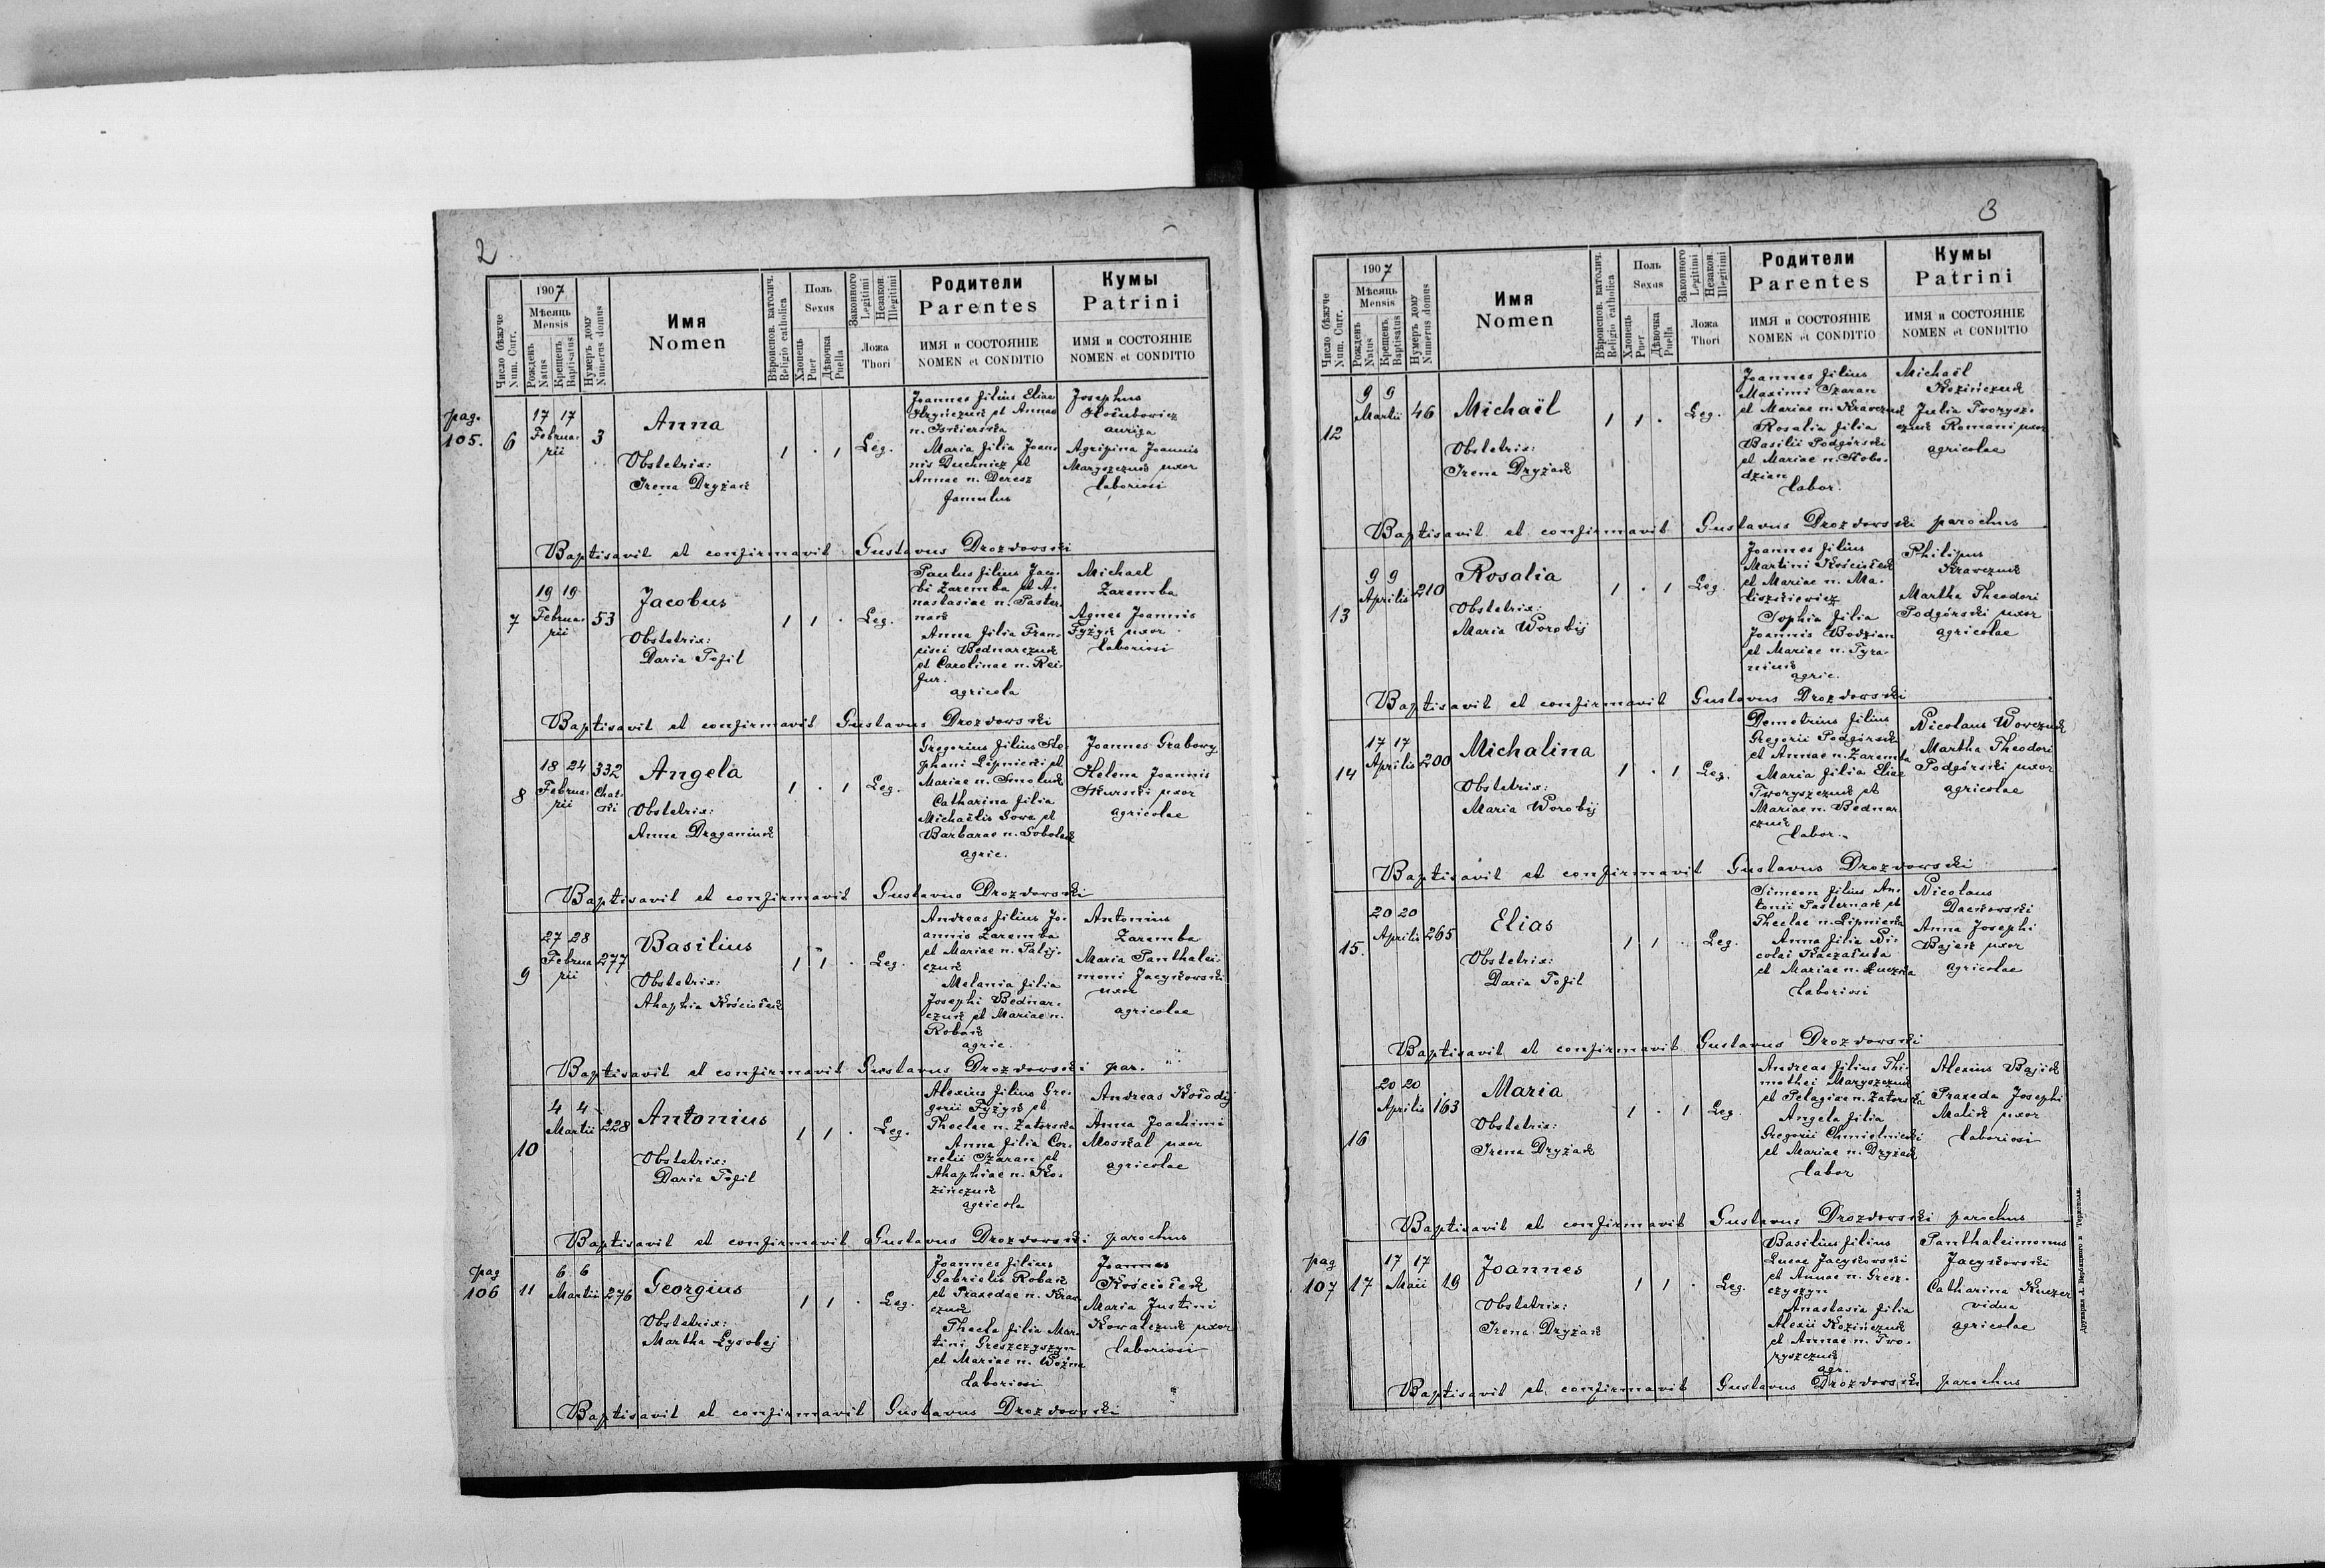 2
Число бѣжуче
Num. Curr.
1907
Мѣсяць
Mensis
Рожденъ
Natus
Крещенъ
Baptisatus
Нумеръ дому
Numerus domus
Имя
Nomen
Вѣроиспов. католич.
Religio catholica
Полъ
Sexus
Хлопець
Puer
Дѣвочка
Puella
Законного
Legitimi
Незакон.
Illegitimi
Ложа
Thori
Родители
Parentes
ИМЯ и СОСТОЯНІЕ
NOMEN et CONDITIO
Кумы
Patrini
ИМЯ и СОСТОЯНІЕ
NOMEN et CONDITIO
pag.
105.
6
17 17
Februa-
rii
3
Anna
Obstetrix:
Irena Dryżak
1 . 1
Leg.
Joannes filius Eliae
Hryńczuk et Annae
n. Iskierska
Maria filia Joan-
nis Duchnicz et
Annae n. Deresz
famulus
Josephus
Hołubowicz
auriga
Agripina Joannis
Maryszczuk uxor
laboriosi
Baptisavit et confirmavit Gustavus Drozdowski
7
19 19
Februa-
rii
53
Jacobus
Obstetrix:
Daria Tofil
1 1 .
Leg.
Paulus filius Jaco-
bi Zaremba et A-
nastasiae n. Paster-
nak
Anna filia Fran-
cisci Bednarczuk
et Carolinae n. Rei-
fur.
agricola
Michael
Zaremba
Agnes Joannis
Fyżyk uxor
laboriosi
Baptisavit et confirmavit Gustavus Drozdowski
8
18 24
Februa-
rii
332
Chat-
ki
Angela
Obstetrix:
Anna Draganiuk
1 . 1
Leg.
Gregorius filius Ste-
phani Lipnicki et
Mariae n. Smoluk
Catharina filia
Michaëlis Sowa et
Barbarae n. Sobolak
agric.
Joannes Grabowy
Helena Joannis
Skurski uxor
agricolae
Baptisavit et confirmavit Gustavus Drozdowski
9
27 28
Februa
rii
277
Basilius
Obstetrix:
Ahaphia Kościołek
1 1 .
Leg.
Andreas filius Jo-
annis Zaremba
et Mariae n. Palij-
czuk
Melania filia
Josephi Bednar-
czuk et Mariae n.
Robak
agric.
Antonius
Zaremba
Maria Panthalei-
moni Jacykowski
uxor
agricolae
Baptisavit et confirmavit Gustavus Drozdowski par.
10
4 4
Martii
228
Antonius
Obstetrix:
Daria Tofil
1 1 .
Leg.
Alexius filius Gre-
gorii Fyżyk et
Theclae n. Zatorska
Anna filia Cor-
nelii Szaran et
Ahaphiae n. Ko-
zińczuk
agricola
Andreas Kołodij
Anna Joachimi
Moskal uxor
agricolae
Baptisavit et confirmavit Gustavus Drozdowski parochus
pag
106
11
6 6
Martii
276
Georgius
Obstetrix:
Martha Lysobej
1 1 .
Leg.
Joannes filius
Gabrielis Robak
et Praxedae n. Kraw-
czuk
Thecla filia Mar-
tini Greszczyszyn
et Mariae n. Woźna
laboriosi
Joannes
Kościołek
Maria Justini
Kowalczuk uxor
laboriosi
Baptisavit et confirmavit Gustavus Drozdowski
3
Число бѣжуче
Num. Curr.
1907
Мѣсяць
Mensis
Рожденъ
Natus
Крещенъ
Baptisatus
Нумеръ дому
Numerus domus
Имя
Nomen
Вѣроиспов. католич.
Religio catholica
Полъ
Sexus
Хлопець
Puer
Дѣвочка
Puella
Законного
Legitimi
Незакон.
Illegitimi
Ложа
Thori
Родители
Parentes
ИМЯ и СОСТОЯНІЕ
NOMEN et CONDITIO
Кумы
Patrini
ИМЯ и СОСТОЯНІЕ
NOMEN et CONDITIO
12
9 9
Martii
46
Michaël
Obstetrix:
Irena Dryżak
1 1 .
Leg.
Joannes filius
Maximi Szaran
et Mariae n. Krawczuk
Rosalia filia
Basilii Podgórski
et Mariae n. Słobo-
dzian
labor.
Michaël
Kozińczuk
Julia Tworysz-
czuk Romani uxor
agricolae
Baptisavit et confirmavit Gustavus Drozdowski parochus
13
9 9
Aprilis
210
Rosalia
Obstetrix:
Maria Worobij
1 . 1
Leg.
Joannes filius
Martini Kościołek
et Mariae n. Ma-
liszkiewicz
Sophia filia
Joannis Bodzian
et Mariae n. Tyra-
niuk
agric.
Philipus
Krawczuk
Martha Theodori
Podgórski uxor
agricolae
Baptisavit et confirmavit Gustavus Drozdowski
14
17 17
Aprilis
200
Michalina
Obstetrix:
Maria Worobij
1 . 1
Leg.
Demetrius filius
Gregorii Podgórski
et Annae n. Zaremba
Maria filia Eliae
Tworyszczuk et
Mariae n. Bednar
czuk
labor.
Nicolaus Worczuk
Martha Theodori
Podgórski uxor
agricolae
Baptisavit et confirmavit Gustavus Drozdowski
15.
20 20
Aprilis
265
Elias
Obstetrix:
Daria Tofil
1 1 .
Leg.
Simeon filius An-
tonii Pasternak et
Theclae n. Lipnicka
Anna filia Ni-
colai Kaczałuba
et Mariae n. Łucka
laboriosi
Nicolaus
Dackowski
Anna Josephi
Bajak uxor
agricolae
Baptisavit et confirmavit Gustavus Drozdowski
16
20 20
Aprilis
163
Maria
Obstetrix:
Irena Dryżak
1 . 1
Leg.
Andreas filius Thi-
mothei Maryszczuk
et Pelagiae n. Zatorska
Angela filia
Gregorii Chmielnicki
et Mariae n. Dryżak
labor
Alexius Bajak
Praxeda Josephi
Malik uxor
laboriosi
Baptisavit et confirmavit Gustavus Drozdowski parochus
pag
107
17
17 17
Maii
19
Joannes
Obstetrix:
Irena Dryżak
1 1 .
Leg.
Basilius filius
Lucae Jacykowski
et Annae n. Gresz-
czyszyn
Anastasia filia
Alexii Kozińczuk
et Annae n. Two-
ryszczuk
agr.
Panthaleimonus
Jacykowski
Catharina Kuczer
vidua
agricolae
Baptisavit et confirmavit Gustavus Drozdowski parochus